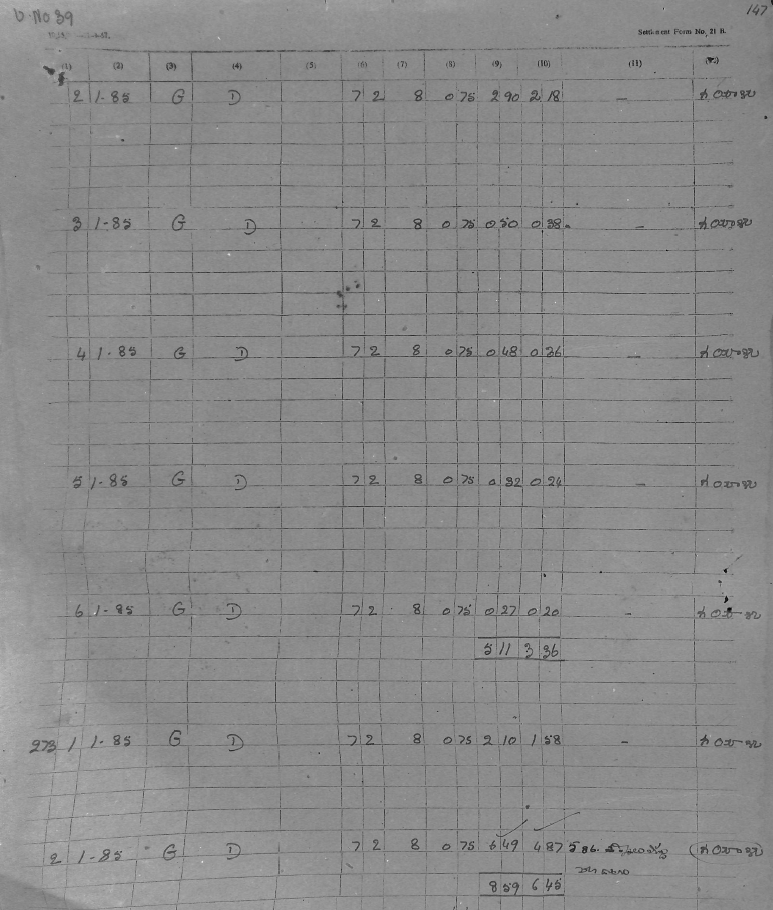 V. No 39
147
Settlement Form No. 21 B.
(1) (2) (3) (4) (5) (6) (7) (8) (9) (10) (11) (12)
2 1-85 G D 7 2 8 0 75 2 90 2 18 —
3 1-85 G D 7 2 8 0 75 0 50 0 38 —
4 1-85 G D 7 2 8 0 75 0 48 0 36 —
5 1-85 G D 7 2 8 0 75 0 32 0 24 —
6 1-85 G D 7 2 8 0 75 0 27 0 20 —
5 11 3 36
273 1 1-85 G D 7 2 8 0 75 2 10 1 58 —
2 1-85 G D 7 2 8 0 75 6 49 4 87
8 59 6 45